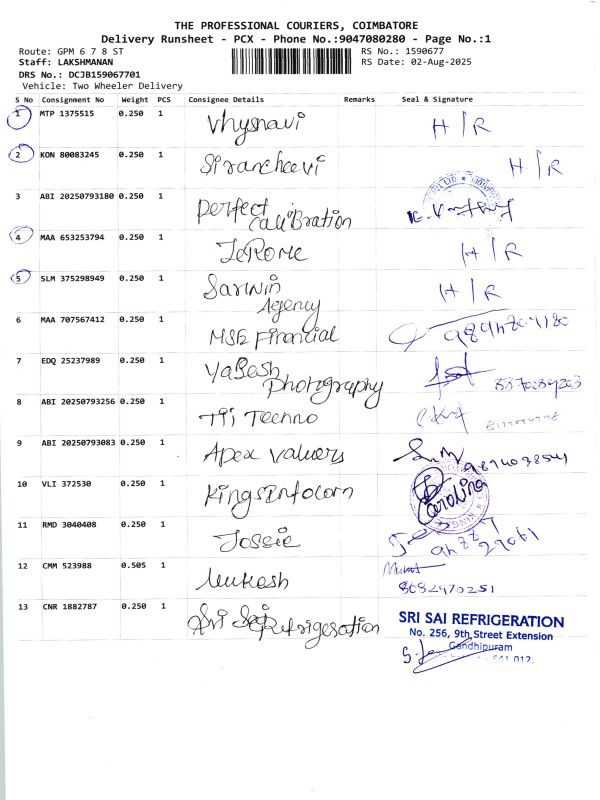 THE PROFESSIONAL COURIERS, COIMBATORE
Delivery Runsheet - PCX - Phone No.:9047080280 - Page No.:1
Route: GPM 6 7 8 ST
RS No.: 1590677
Staff: LAKSHMANAN
RS Date: 02-Aug-2025
DRS No.: DCJB159067701
Vehicle: Two Wheeler Delivery
S No Consignment No Weight PCS Consignee Details Remarks Seal & Signature
1 MTP 1375515 0.250 1 Vhyshavi H/R
2 KON 80083245 0.250 1 Siranchevi H/R
3 ABI 20250793180 0.250 1 Perfect Calibration
4 MAA 653253794 0.250 1 JeROMe H/R
5 SLM 375298949 0.250 1 Sarwin Agency H/R
6 MAA 707567412 0.250 1 MSE Financial
7 EDQ 25237989 0.250 1 YaBesh Photography
8 ABI 20250793256 0.250 1 Techno
9 ABI 20250793083 0.250 1 Apex Valuers
10 VLI 372530 0.250 1 KingsInfocom Carolina
11 RMD 3040408 0.250 1 Jossie
12 CMM 523988 0.505 1 Mukesh 8082470251
13 CNR 1882787 0.250 1 Sri Sai Refrigeration
SRI SAI REFRIGERATION
No. 256, 9th Street Extension
Gandhipuram